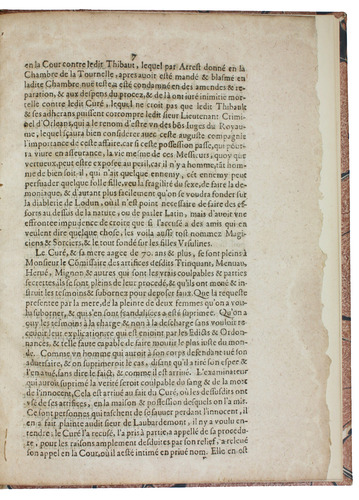 7
en la Cour contre ledit Thibaut, lequel par Arrest donné en la
Chambre de la Tournelle, apres auoir esté mandé & blasmé en
ladite Chambre nuë teste, a esté condamné en des amendes & re-
paration, & aux despens du procez, & de là ont iuré inimitié mor-
telle contre ledit Curé, lequel ne croit pas que ledit Thibault
& ses adherans puissent corrompre ledit sieur Lieutenant Crimi-
nel d'Orleans, qui a le renom d'estre vn des bōs Iuges du Royau-
me, lequel sçaura bien considerer auec ceste auguste compagnie
l'importance de ceste affaire, car si ceste possession passe, qui pour-
ra viure en asseurance, la vie mesme de ces Messieurs, quoy que
vertueux, peut estre exposée au peril, car il n'y a homme, tāt hom-
me de bien soit-il, qui n'ait quelque ennemy, cét ennemy peut
persuader quelque folle fille, veu la fragilité du sexe, de faire la de-
moniaque, & d'autant plus facilement qu'on se voudra fonder sur
la diablerie de Lodun, où il n'est point necessaire de faire des ef-
forts au dessus de la nature, ou de parler Latin, mais d'auoir vne
effrontée impudence de croire que si l'accusé a des amis qui en
veulent dire quelque chose, les voila aussi tost nommez Magi-
ciens & Sorciers, & le tout fondé sur les filles Vrsulines.
Le Curé, & sa mere aagée de 70. ans & plus, se sont plains à
Monsieur le Cōmissaire des artifices desdits Trinquant, Menuau,
Herué, Mignon & autres qui sont les vrais coulpables & parties
secretes, ils se sont pleins de leur procedé, & qu'ils ont moné & in-
struit les tesmoins & subornez pour deposer faux. Que la requeste
presentée par la mere, de la pleinte de deux femmes qu'on a vou-
lu suborner, & qui s'en sont scandalisées a esté supprimée. Qu'on a
ouy les tesmoins à la charge & non à la descharge sans vouloir re-
ceuoir leur explication, ce qui est enioint par les Edicts & Ordon-
nances, & telle faute capable de faire mourir le plus iuste du mon-
de. Comme vn homme qui auroit à son corps defendant tué son
aduersaire, & on supprimeroit le cas, disant qu'il a tiré son espée &
l'en a tué, sans dire le faict, & comme il est arriué. L'examinateur
qui auroit supprimé la verité seroit coulpable du sang & de la mort
de l'innocent, Cela est arriué au fait du Curé, où les desusdits ont
vsé de ses artifices, en la maison & possession desquels on l'a mis.
Ce sont personnes qui taschent de se sauuer perdant l'innocent, il
en a fait plainte audit sieur de Laubardemont, il n'y a voulu en-
tendre, le Curé l'a recusé, l'a pris à partie, a appellé de sa procedu-
re, pour les raisons amplement desduites par son relief, a releué
son appel en la Cour, où il a esté intimé en priué nom. Elle en est